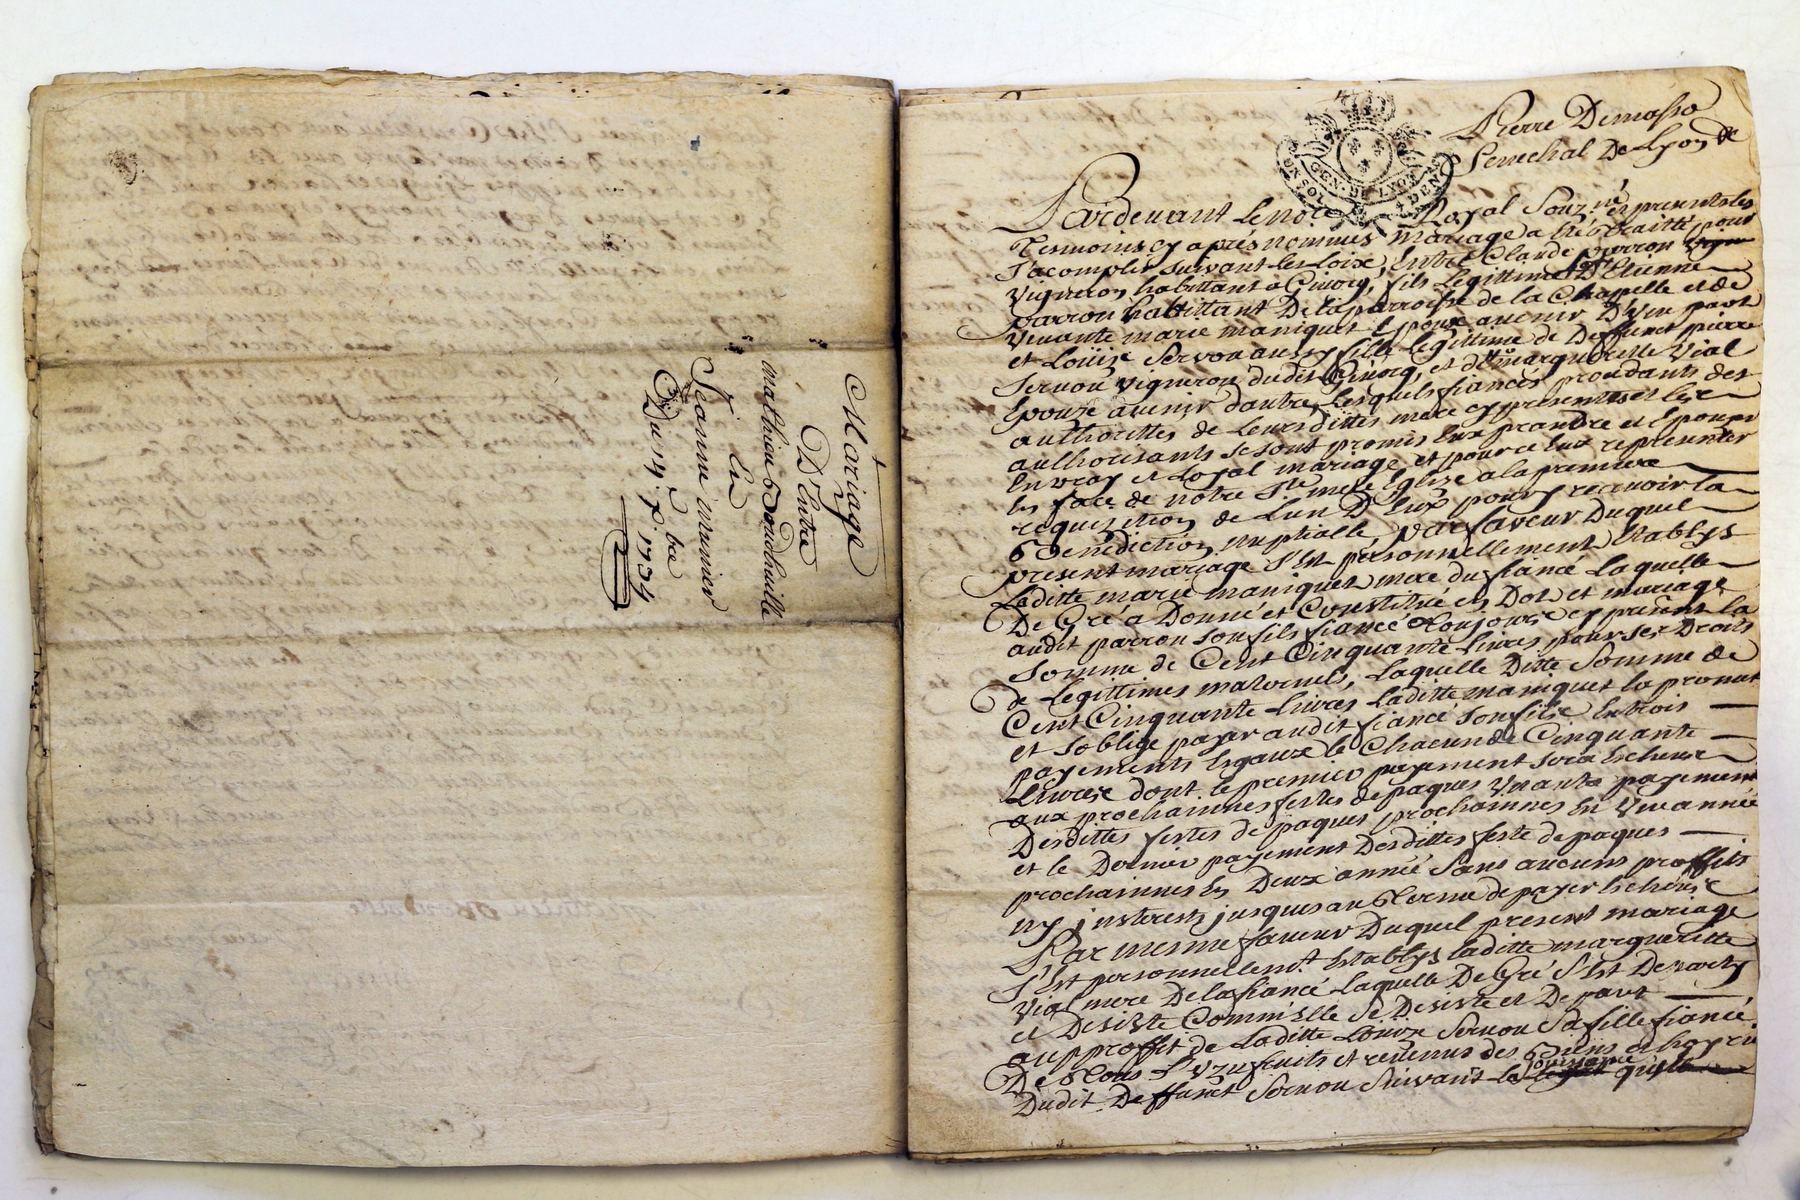 Mariage
D'Entre
mathieu Bouchuille
Et
Jeanne munier
Du 14 7bre 1734
GEN. DE LYON
Pierre Demasso
Senechal De Lyon &
Pardevant le no.re Royal Souz.né et presents les
Tesmoins cy après nommes mariage a été traitté pour
S'acomplir suivant les loix, Entre Claude parron
vigneron habittant a Givorg, fils Legittime D'Etienne
parron habittant De la parroisse de la Chapelle et de
vivante marie maniquet Epoux avenir D'Une part
et Loüise Servou aussy fille legittime de Deffunct pierre
Servou vigneron dudit Givorg, et de margueritte Vial
Epouze avenir d'autre, lesquels fiancés procedants des
authorittes de leursdittes mere cy presentes et les
authorisants se sont promis Eux prandre et Epouzer
En vray et Loyal mariage, et pour ce Eux representer
En face de notre S.te mere Eglize a la premiere
requisition de L'un D'Eux pour y recevoir la
Benediction nuptialle, par faveur Duquel
present mariage s'Est personnellement Etablys
Laditte marie maniquet mere du fiancé laquelle
De Gré a Donné et Constitué en Dot et mariage
audit parron son fils fiancé toujours cy present la
somme de Cent Cinquante livres pour ses Droits
de legittimes maternels, laquelle Ditte Somme de
Cent Cinquante livres laditte maniquet la promet
et soblige payer audit fiancé son fils En trois
payements Egaux de Chacun de Cinquante
Livres dont le premier payement sera Echeu
aux prochainnes festes de paques Un autre payement
Desdittes festes de paques prochainnes En Une année
et le Dernier payement Desdittes feste de paques
prochainnes En Deux année Sans aucuns proffits
ny jnterests jusques au Terme de payer Echeus
Par mesme faveur Duquel present mariage
s'Est personnellem.t Etablys laditte margueritte
Vial mere De la fiancé laquelle De Gré s'Est Demarty
et Desiste Comm'Elle Se Desiste et Depart
au proffit de laditte Loüise Servou sa fille fiancé
De tous l'uzufruits et revenus des Biens et hoyrie
Dudit Deffunct Servou Suivant la jouissance qu'il